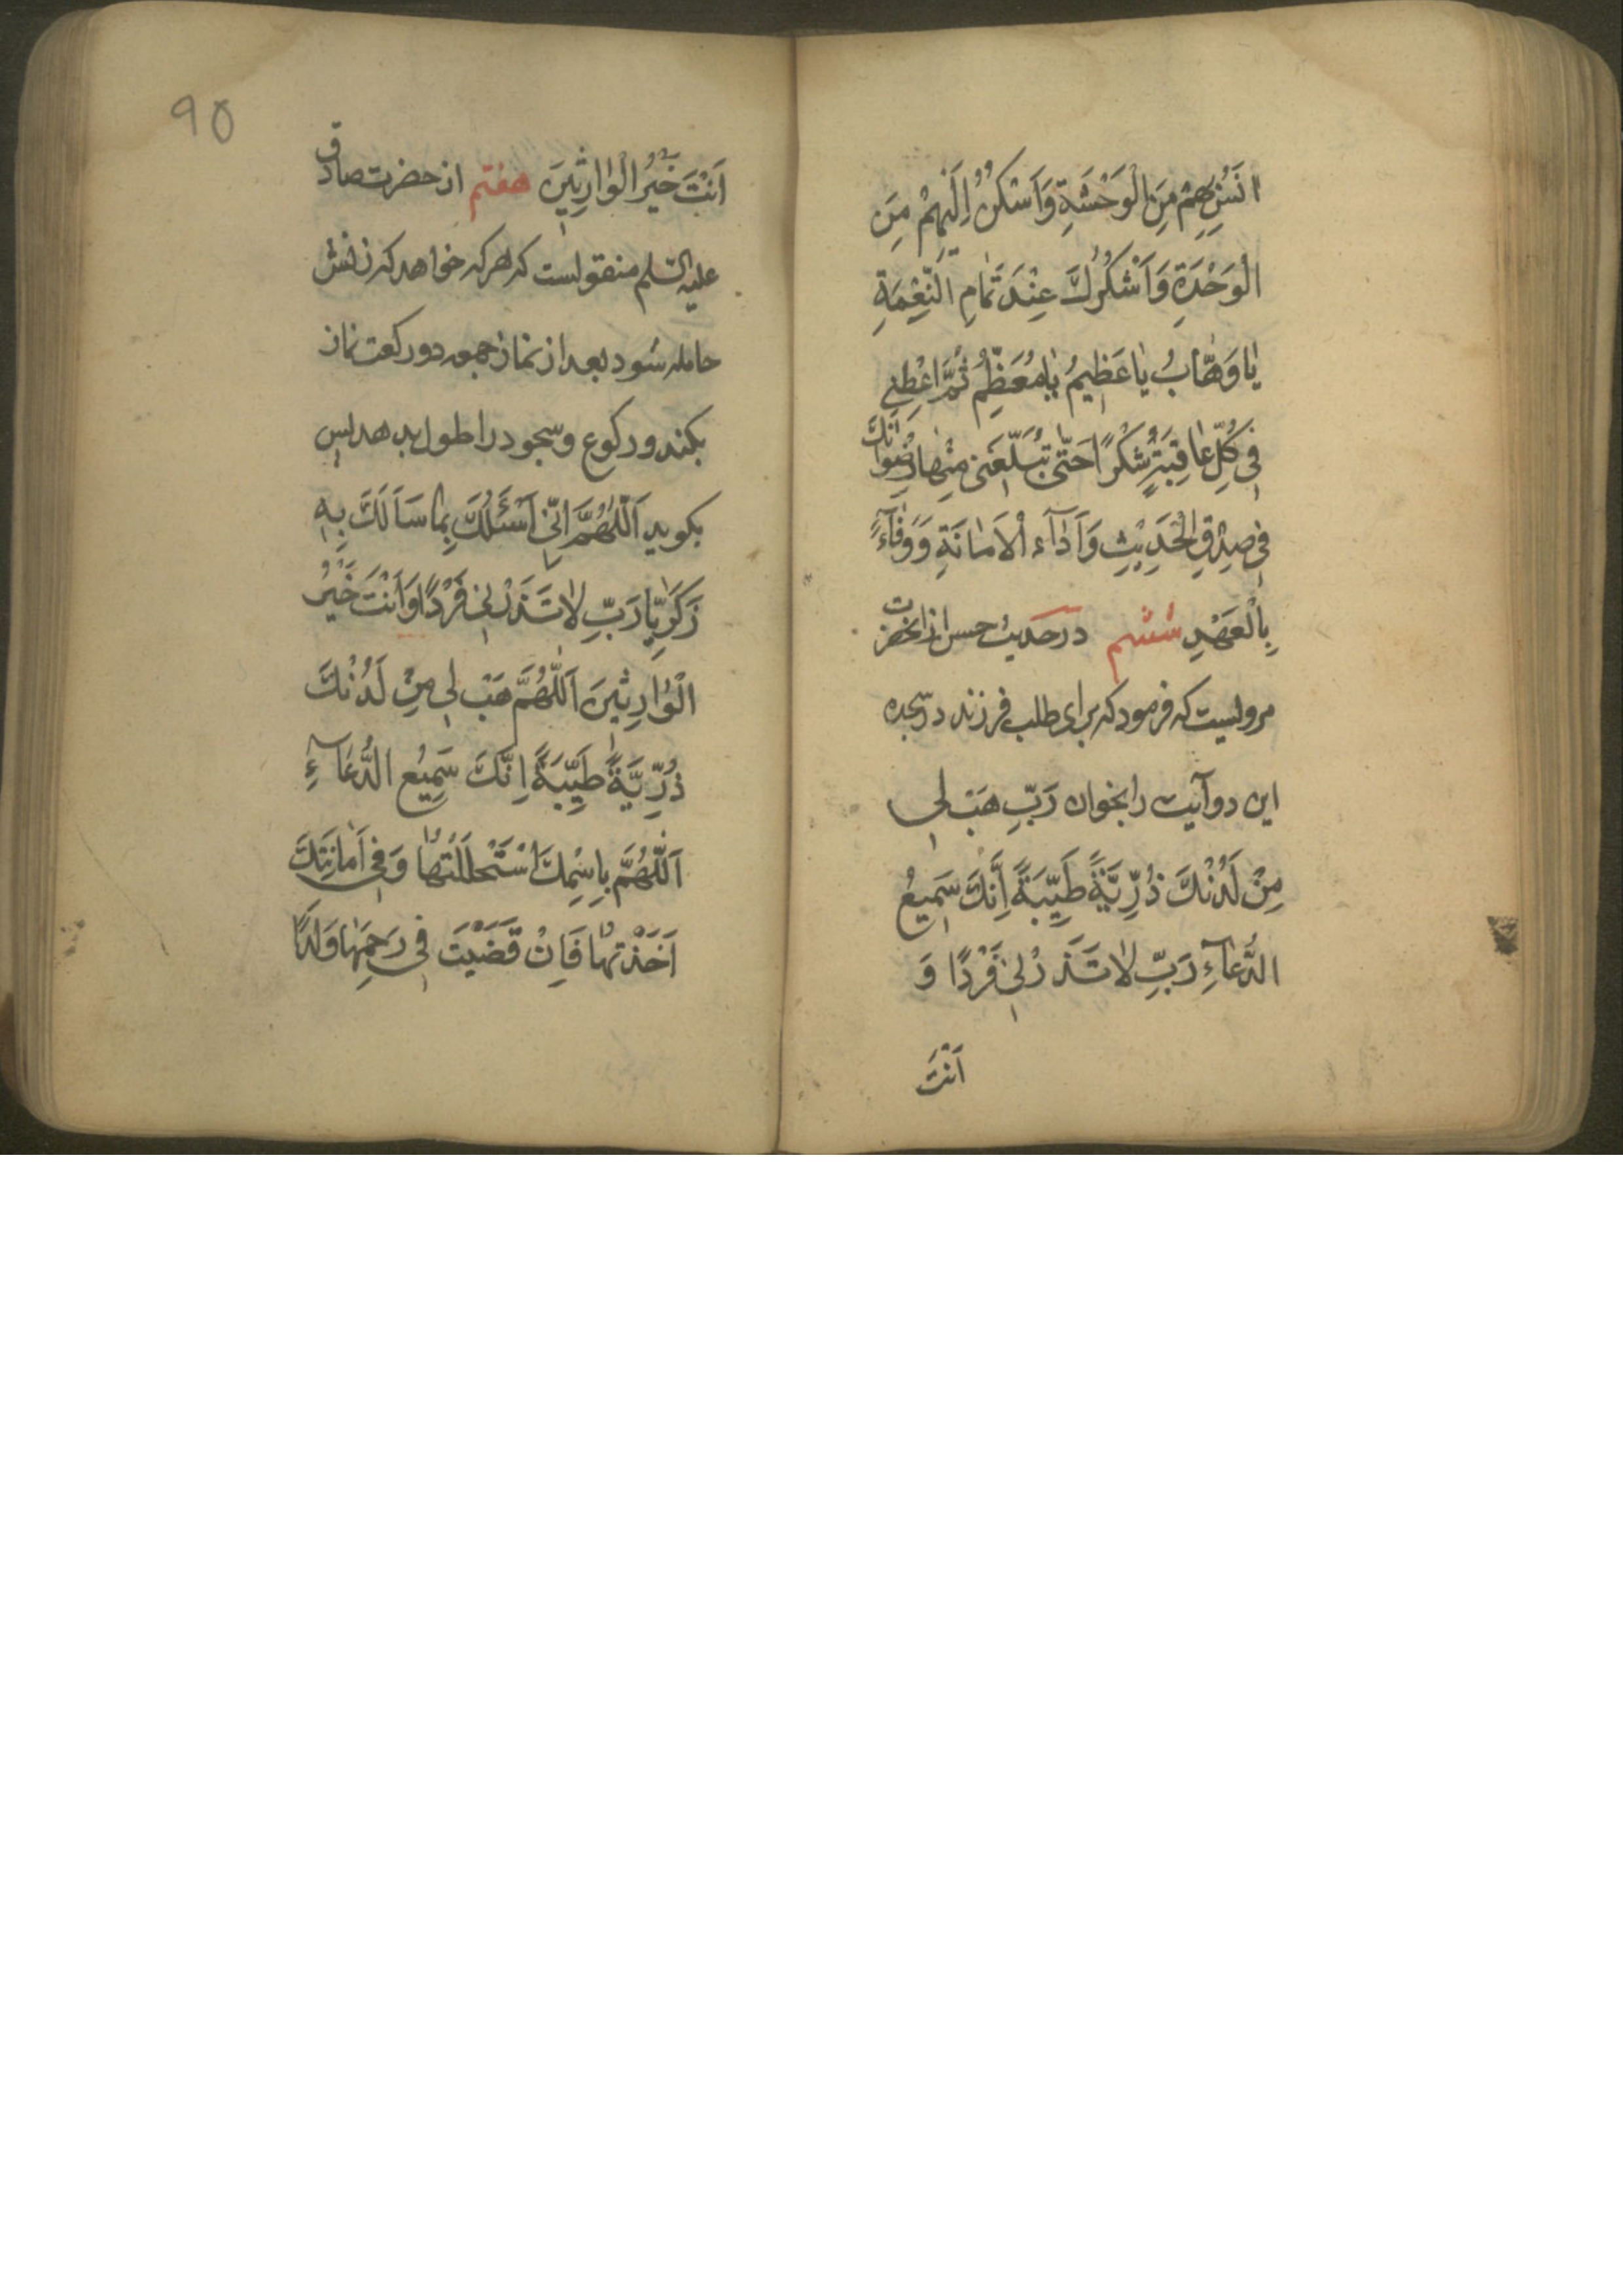 انَسُ بِهِمْ مِنَ الْوَحْشَةِ وَاَسْكُنُ اِلَيْهِمْ مِنَ
الْوَحْدَةِ وَاَشْكُرُكَ عِنْدَ تَمامِ النِّعْمَةِ
يٰا وَهّٰابُ يٰا عَظيمُ يٰا مُعَظِّمُ ثُمَّ اَعْطِنى
فى كُلِّ عٰاقِبَةٍ شُكْرًا حَتّٰى تُبَلِّغَنى مِنْهٰا رِضْوٰانَكَ
فى صِدْقِ الْحَديثِ وَاَدٰآءِ الْاَمٰانَةِ وَ وَفٰآءً
بِالْعَهْدِ ششم در حدیث حسن از انحضرت
مرویست که فرمود که برای طلب فرزند در سجده
این دو آیت را بخوان رَبِّ هَبْ لى
مِنْ لَدُنْكَ ذُرِّيَّةً طَيِّبَةً اِنَّكَ سَميعُ
الدُّعٰآءِ رَبِّ لٰا تَذَرْنى فَرْدًا وَ
اَنْتَ
90
اَنْتَ خَيْرُ الْوٰارِثينَ هفتم از حضرت صادق
علیه السّلم منقولست که هر که خواهد که زنش
حامله شود بعد از نماز جمعه دو رکعت نماز
بکند و رکوع و سجود را طول بدهد پس
بکوید اَللّٰهُمَّ اِنّى اَسْئَلُكَ بِمٰا سَاَلَكَ بِهِ
زَكَرِيّٰا رَبِّ لٰا تَذَرْنى فَرْدًا وَاَنْتَ خَيْرُ
الْوٰارِثينَ اَللّٰهُمَّ هَبْ لى مِنْ لَدُنْكَ
ذُرِّيَّةً طَيِّبَةً اِنَّكَ سَميعُ الدُّعٰآءِ
اَللّٰهُمَّ بِاسْمِكَ اسْتَحْلَلْتُهٰا وَفى اَمٰانَتِكَ
اَخَذْتُهٰا فَاِنْ قَضَيْتَ فى رَحِمِهٰا وَلَدًا